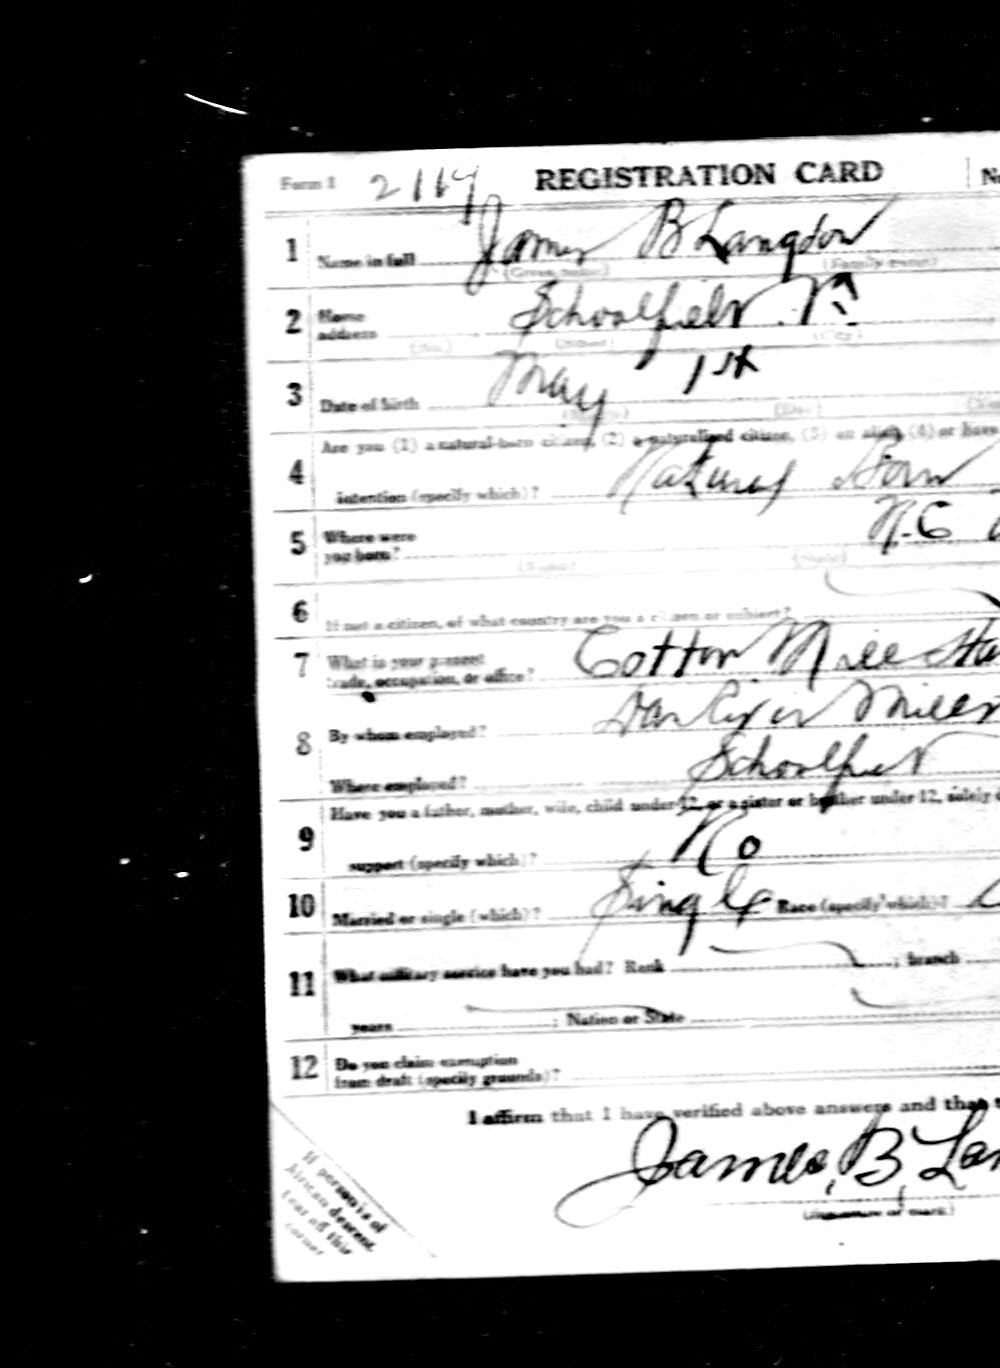 Form 1 2117 REGISTRATION CARD
1 Name in full James B Langdon
(Given name) (Family name)
2 Home address Schoolfield Va
(No.) (Street) (City)
3 Date of birth May 1st
(Month) (Day)
Are you (1) a natural-born citizen, (2) a naturalized citizen, (3) an alien, (4) or have
4 intention (specify which)? Natural Born
5 Where were you born? N.C
(Town) (State)
6 If not a citizen, of what country are you a citizen or subject?
7 What is your present trade, occupation, or office? Cotton Mill
8 By whom employed? Dan River Mills
Where employed? Schoolfield
9 Have you a father, mother, wife, child under 12, or a sister or brother under 12, solely
support (specify which)? No
10 Married or single (which)? Single Race (specify which)?
11 What military service have you had? Rank ; branch
years ; Nation or State
12 Do you claim exemption
from draft (specify grounds)?
I affirm that I have verified above answers and that
James, B, Lan
(Signature or mark)
If person is of
African descent,
tear off this
corner